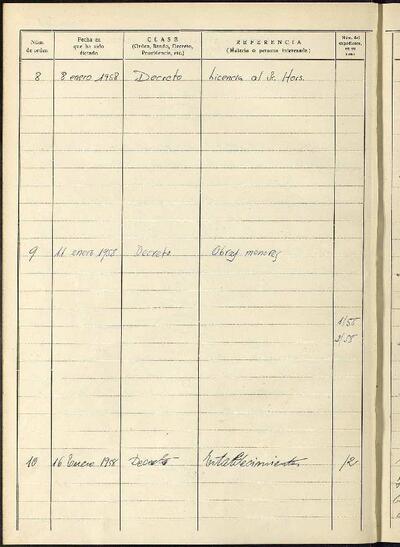 Núm. de orden
Fecha en que ha sido dictado
CLASE
(Orden, Bando, Decreto, Providencia, etc.)
REFERENCIA
(Materia o persona interesada)
Núm. del expediente, en su caso
8 8 enero 1958 Decreto Licencia al Sr.
9 11 enero 1958 Decreto Obras menores
1/58
2/58
10 16 Enero 1958 Decreto Establecimientos